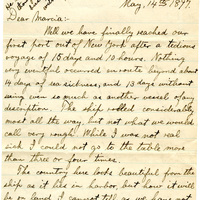 May, 14th 1897.
Dear Marcia:-
Well we have finally reached our
first port out of New York after a tedious
voyage of 15 days and 10 hours. Nothing
very eventful occurred en route beyond about
4 days of sea sickness, and 13 days without
seeing even so much as another vessel of any
description. The ship rolled considerably
most all the way, but not what we would
call very rough. While I was not real
sick I could not go to the table more
than three or four times.
The country here looks beautiful from the
ship as it lies in harbor, but how it will
be on land I cannot tell as we have not